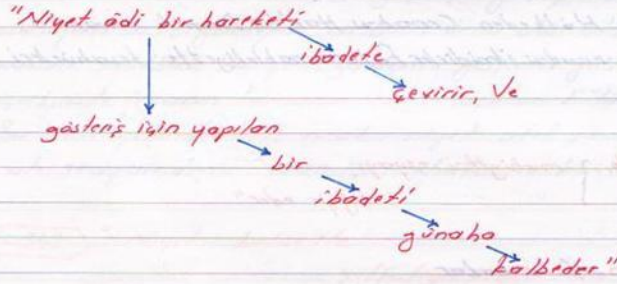 "Niyet âdi bir hareketi
ibâdete
çevirir, Ve
gösteriş için yapılan
bir
ibâdeti
günaha
kalbeder"